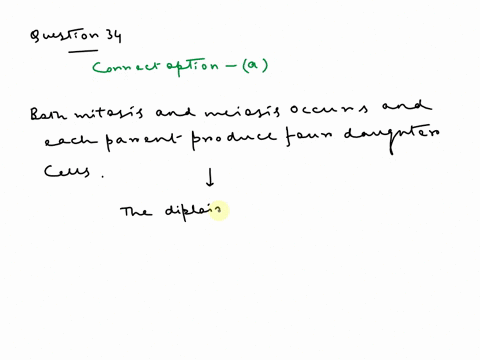 Question 34
Correct option - (a)
Both mitosis and meiosis occurs and
each parent produce four daughter
cells.
The diploi